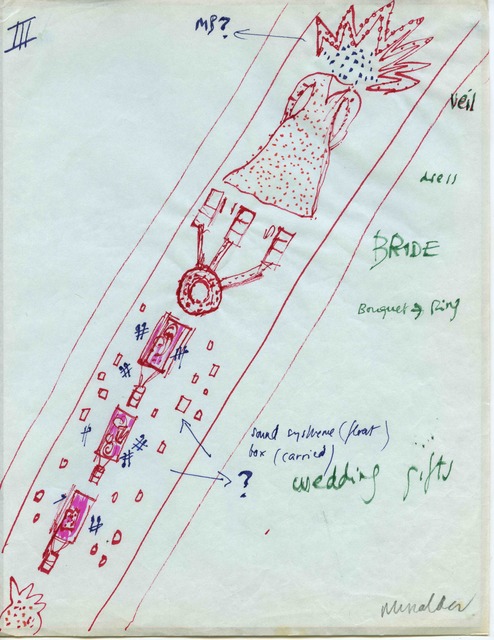 III
MP?
veil
dress
BRIDE
Bouquet & Ring
sound systheme (float)
box (carried)
...
wedding gifts
?